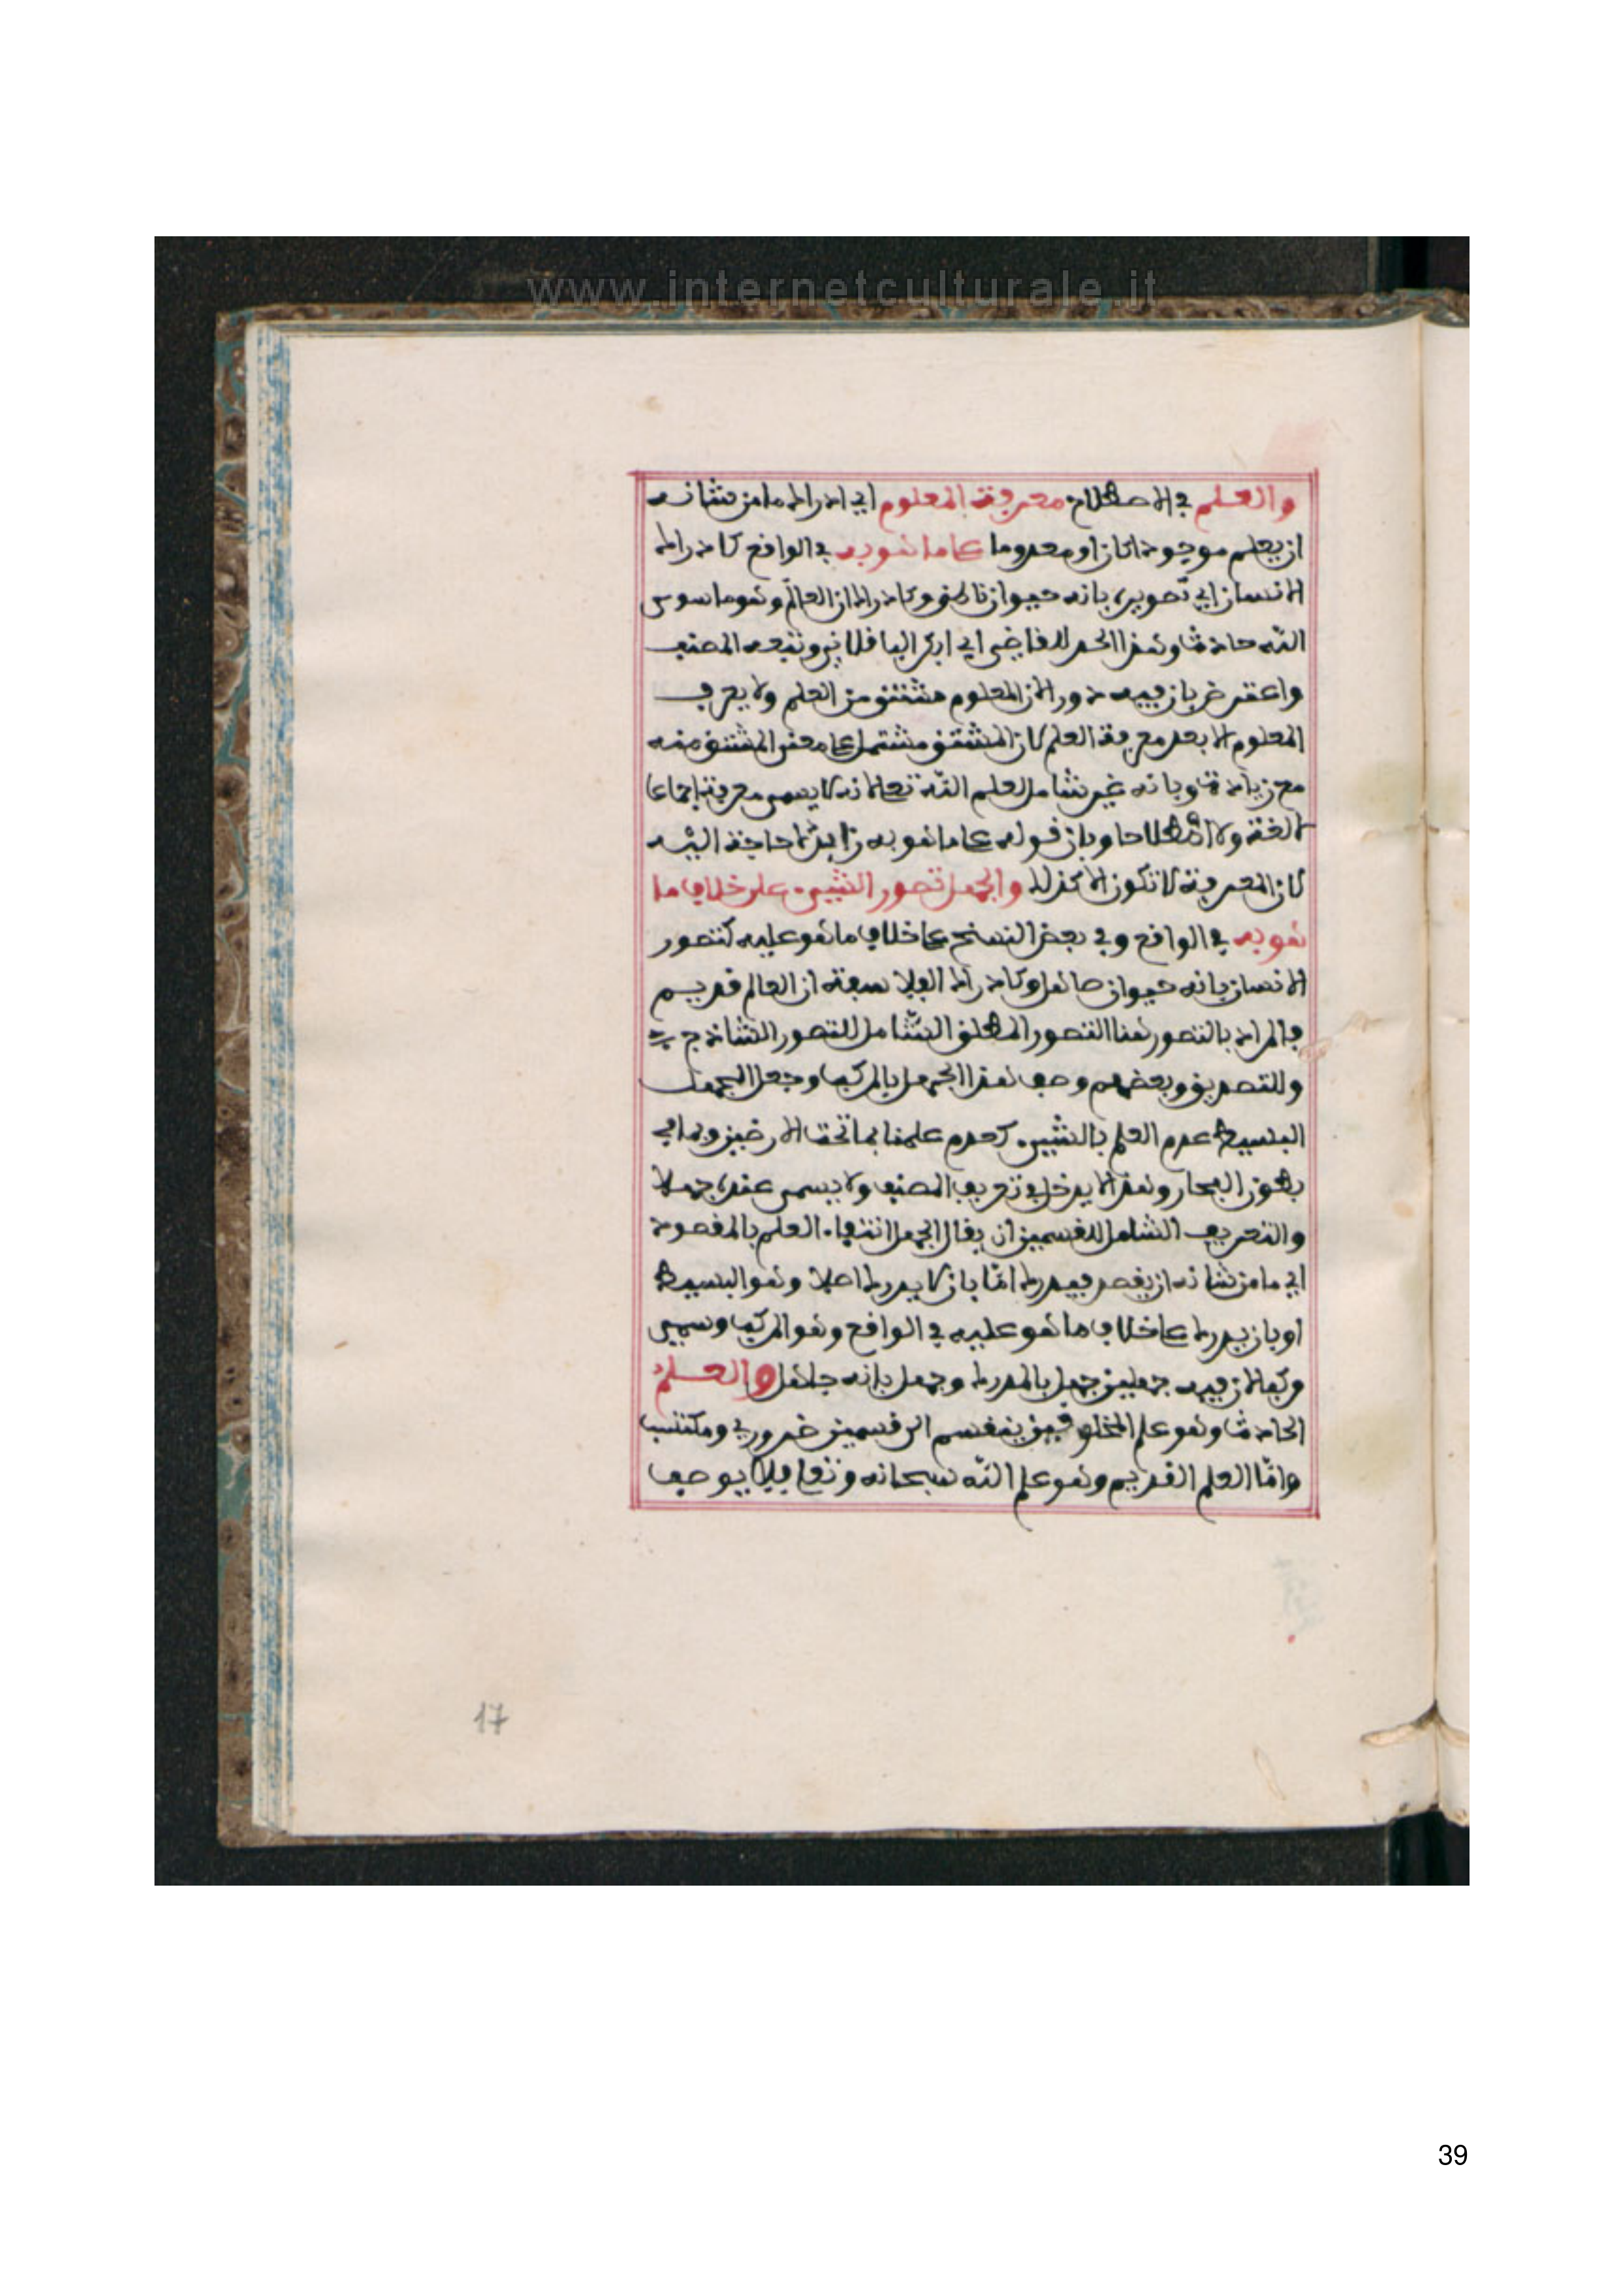 www.internetculturale.it
والعلم في الاصطلاح معرفة المعلوم اي ادراك ما من شانه
ان يعلم موجودا كان او معدوما على ما هو به في الواقع كادراك
الانسان اي تصويره بانه حيوان ناطق وكادراك ان العالم وهو ما سوى
الله حادث وهذا الحد للقاضي ابي ابكر الباقلاني وتبعه المصنف
واعترض بان فيه دور لان المعلوم مشتق من العلم ولا يعرف
المعلوم الا بعد معرفة العلم لان المشتق مشتمل على معنى المشتق منه
مع زيادة وبانه غير شامل لعلم الله تعلى لانه لا يسمى معرفة اجماعا
لا لغة ولا اصطلاحا وبان قوله على ما هو به زايد لا حاجة اليه
لان المعرفة لا تكون الا كذلك والجهل تصور الشيء على خلاف ما
هو به في الواقع وفي بعض النسخ على خلاف ما هو عليه كتصور
الانسان بانه حيوان صاهل وكادراك الفلاسفة ان العالم قديم
فالمراد بالتصور هنا التصور المطلق الشامل للتصور الساذج
وللتصديق وبعضهم وصف هذا الجهل بالمركب وجعل الجهل
البسيط عدم العلم بالشيء كعدم علمنا بما تحت الارضين وبما في
بطون البحار وهذا لا يدخل في تعريف المصنف ولا يسمى عنده جهلا
والتعريف الشامل للقسمين ان يقال الجهل انتفاء العلم بالمقصود
اي ما من شانه ان يقصد فيدرك امّا بان لا يدرك اصلا وهو البسيط
او بان يدرك على خلاف ما هو عليه في الواقع وهو المركب وسمي
مركبا لان فيه جهلين جهل بالمدرك وجهل بانه جاهل والعلم
الحادث وهو علم المخلوقين ينقسم الى قسمين ضروري ومكتسب
وامّا العلم القديم وهو علم الله سبحانه وتعلى فلا يوصف
17
39